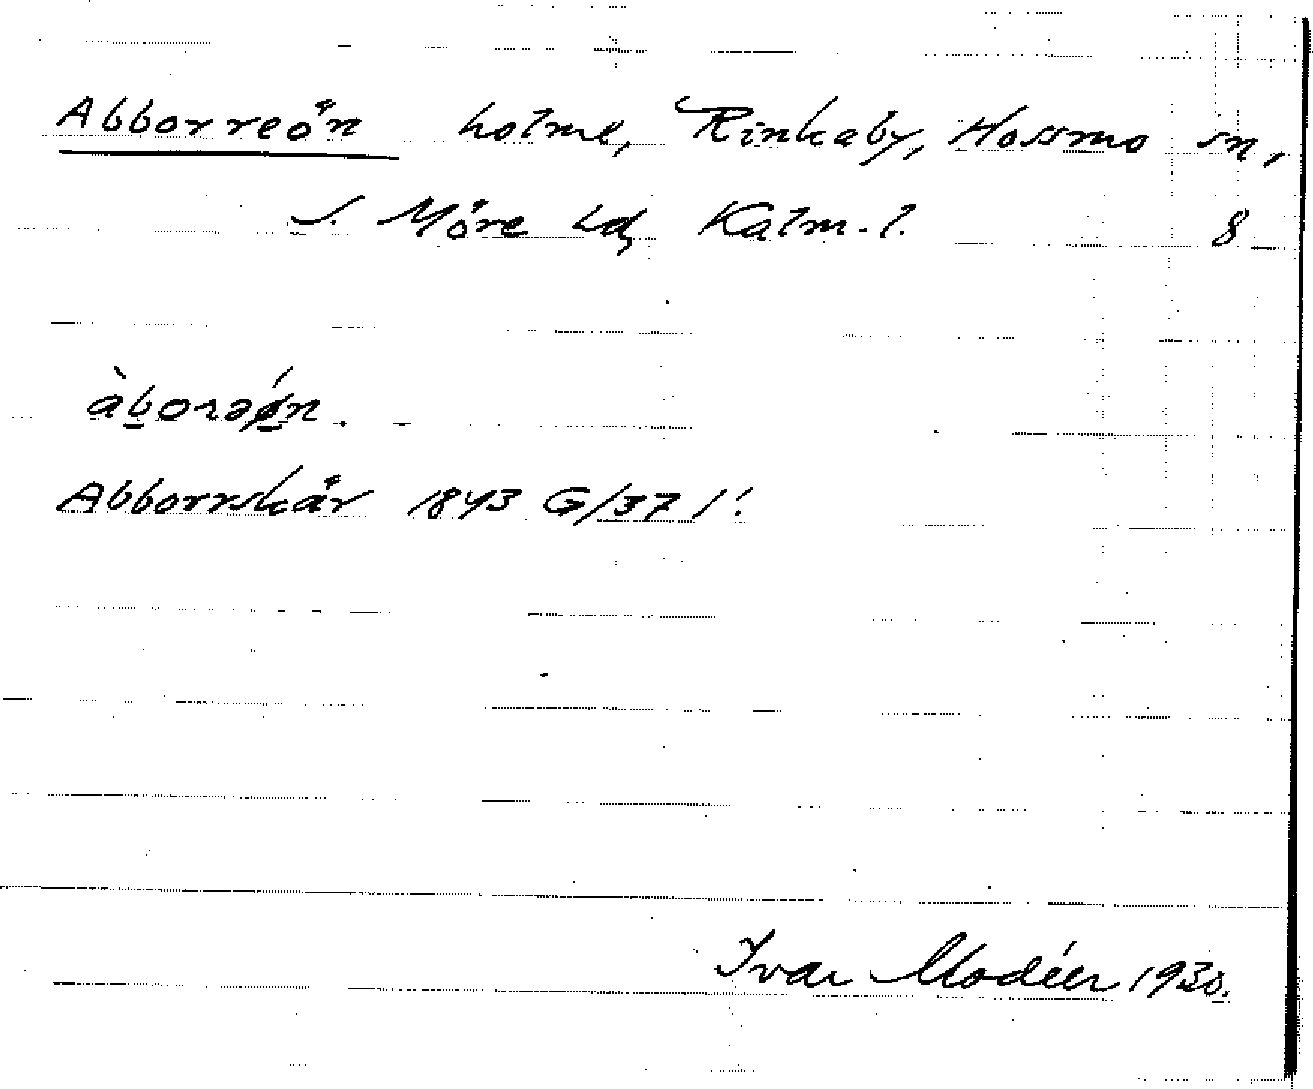 Abborreön holme, Rinkaby, Hossmo sn,
S. Möre hd, Kalm. l. 8
Abborrskär 1843 G/37 1!
Ivar Modéer 1930.